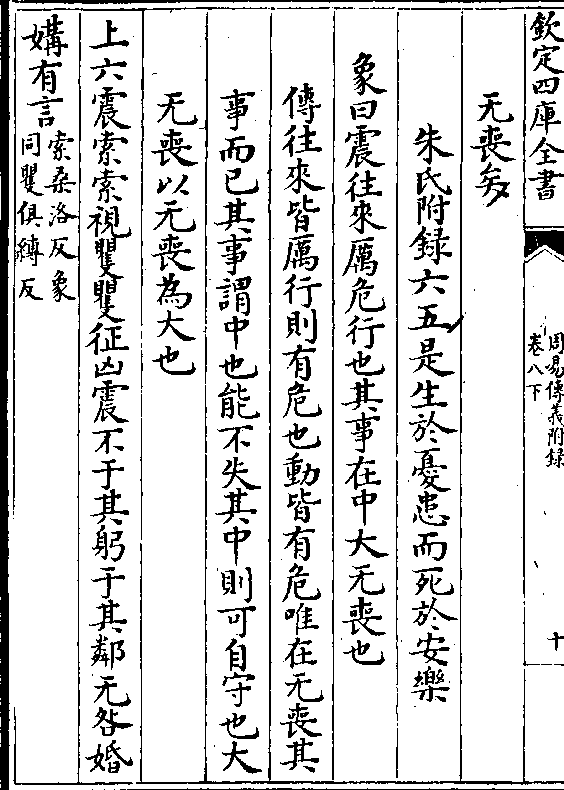 欽定四庫全書
周易傳義附録
卷八下
十
无喪矣
朱氏附録六五是生於憂患而死於安樂
象曰震往來厲危行也其事在中大无喪也
傳往來皆厲行則有危也動皆有危唯在无喪其
事而已其事謂中也能不失其中則可自守也大
无喪以无喪為大也
上六震索索視矍矍征凶震不于其躬于其鄰无咎婚
媾有言
索桑洛反象
同矍俱縛反